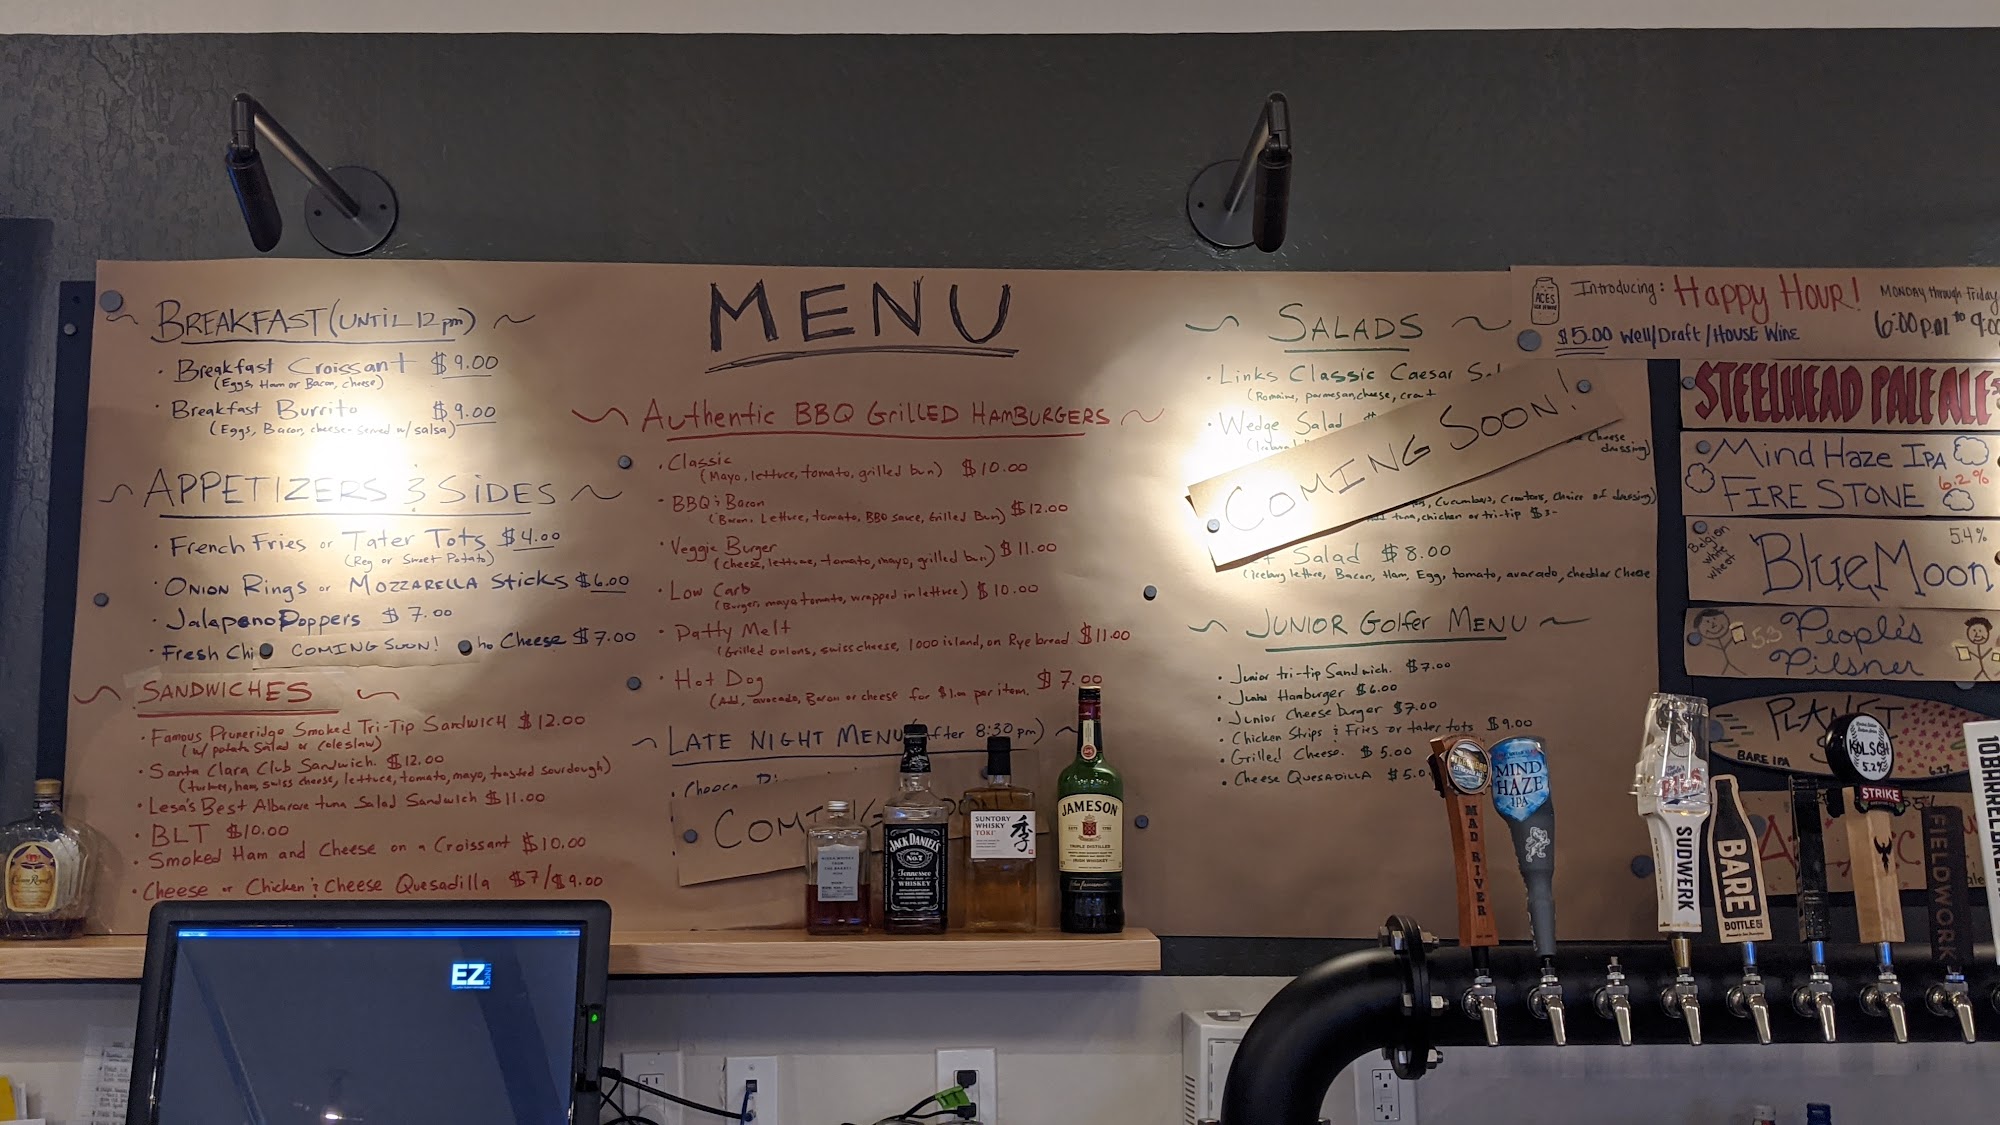 MENU
BREAKFAST (UNTIL 12pm)
Breakfast Croissant $9.00
(Eggs, Ham or Bacon, cheese)
Breakfast Burrito $9.00
(Eggs, Bacon, cheese - served w/ salsa)
APPETIZERS & SIDES
French Fries or Tater Tots $4.00
(Reg or Sweet Potato)
ONION Rings or MOZZARELLA Sticks $6.00
Jalapeno Poppers $7.00
Fresh Chi COMING SOON! ho Cheese $7.00
SANDWICHES
Famous Pruneridge Smoked Tri-Tip Sandwich $12.00
(w/ potato Salad or Coleslaw)
Santa Clara Club Sandwich. $12.00
(turkey, ham, swiss cheese, lettuce, tomato, mayo, toasted sourdough)
Lesa's Best Albacore tuna Salad Sandwich $11.00
BLT $10.00
Smoked Ham and Cheese on a Croissant $10.00
Cheese or Chicken & Cheese Quesadilla $7/$9.00
Authentic BBQ GRILLED HAMBURGERS
Classic
(Mayo, lettuce, tomato, grilled bun) $10.00
BBQ & Bacon
(Bacon, Lettuce, tomato, BBQ sauce, Grilled Bun) $12.00
Veggie Burger
(cheese, lettuce, tomato, mayo, grilled bun) $11.00
Low Carb
(Burger, mayo, tomato, wrapped in lettuce) $10.00
Patty Melt
(Grilled onions, swiss cheese, 1000 island, on Rye bread $11.00
Hot Dog $7.00
(Add, avocado, Bacon or cheese for $1.00 per item.
LATE NIGHT MENU (After 8:30 pm)
COMING SOON!
SALADS
Links Classic Caesar
(Romaine, parmesan cheese,
Wedge Salad
COMING SOON!
cheese
dressing)
Cucumbers, Croutons, choice of dressing)
tuna, chicken or tri-tip $3-
Salad $8.00
(iceburg lettuce, Bacon, Ham, Egg, tomato, avacado, cheddar Cheese
JUNIOR Golfer MENU
Junior tri-tip Sandwich. $7.00
Junior Hamburger $6.00
Junior Cheeseburger $7.00
Chicken Strips & Fries or tater tots $9.00
Grilled Cheese. $5.00
Cheese QUESADILLA $5.0
ACES
Introducing: Happy HOUR!
MONDAY through Friday
6:00pm to 9:00
$5.00 Well/Draft/HOUSE WINE
STEELHEAD PALE ALE
Mind Haze IPA
FIRE STONE 6.2%
Belgian white wheat
Blue Moon 5.4%
5.3 People's
Pilsner
PLANET
BARE IPA
Crown Royal
JACK DANIEL'S
Old No.7
Tennessee
WHISKEY
SUNTORY
WHISKY
TOKI
季
JAMESON
TRIPLE DISTILLED
IRISH WHISKEY
EZ
LINKS
MAD RIVER
MIND
HAZE
IPA
SUDWERK
BARE
BOTTLE
KÖLSCH
5.2%
STRIKE
FIELDWORK
10BARREL BREWING